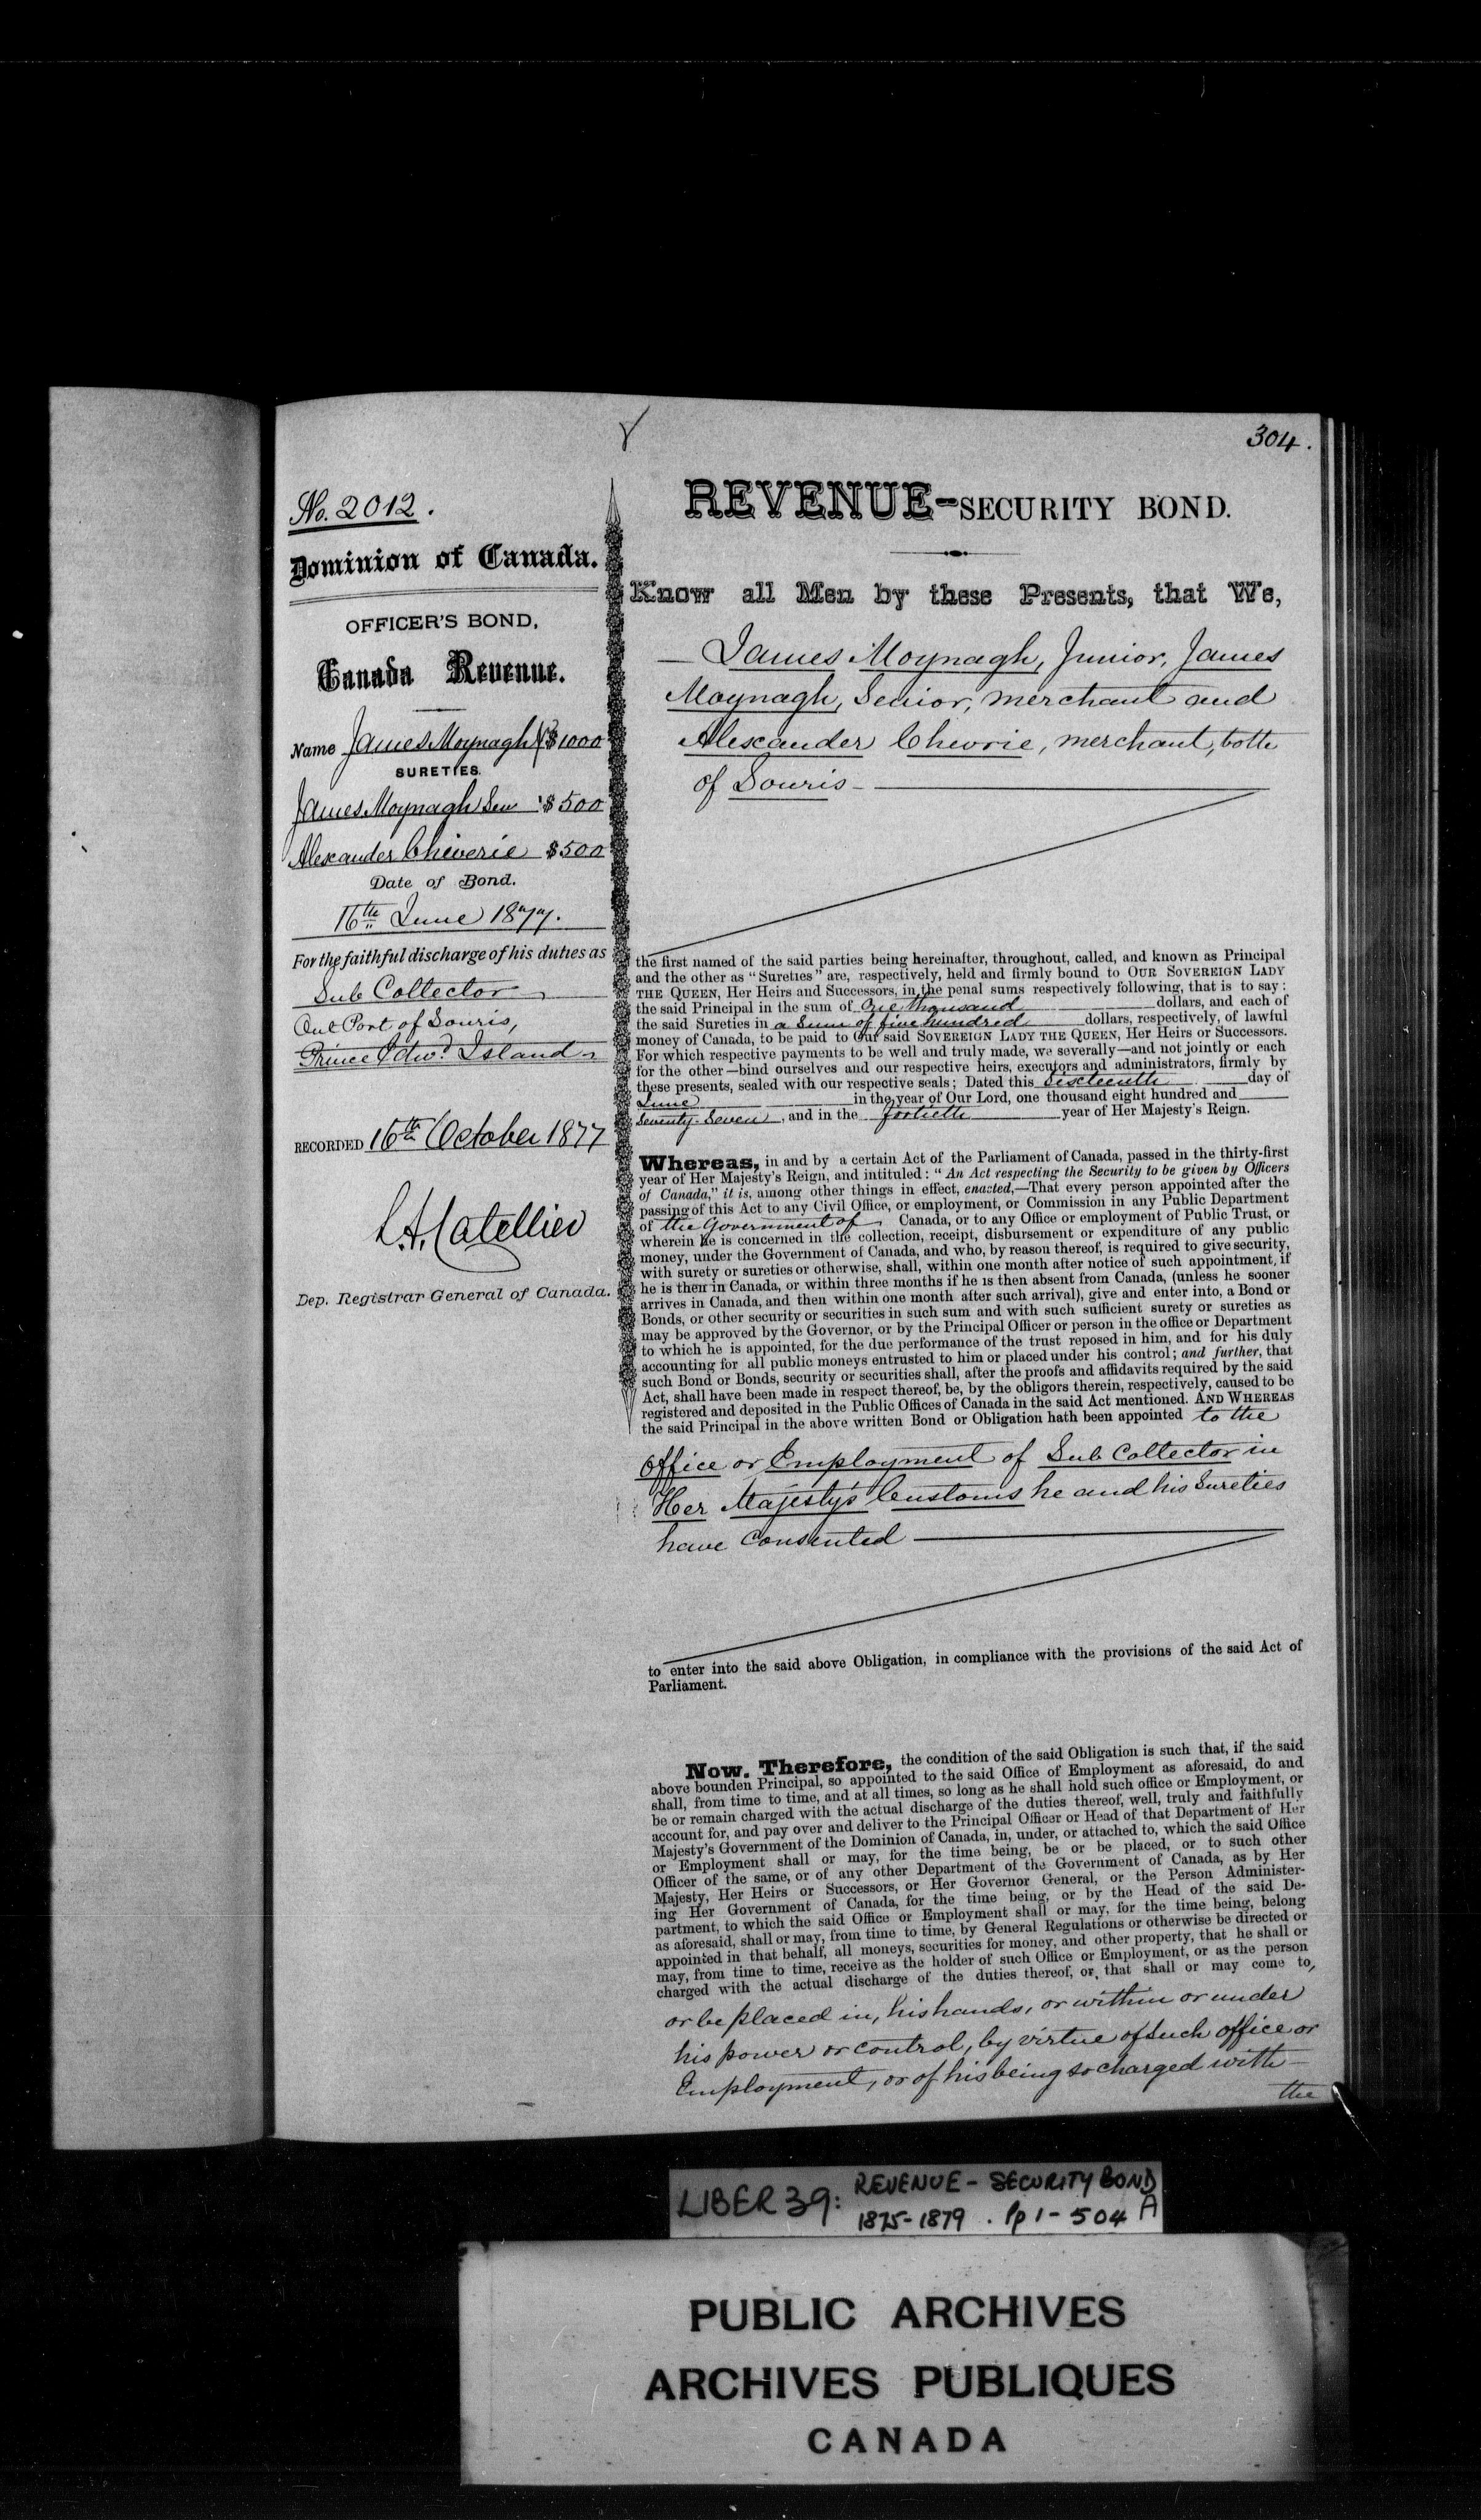 304.
No. 2012.
Dominion of Canada.
OFFICER'S BOND,
Canada Revenue.
Name James Moynagh Jr $1000
SURETIES.
James Moynagh Sen $500
Alexander Cheverie $500
Date of Bond.
16th June 1877.
For the faithful discharge of his duties as
Sub Collector
Out Port of Souris,
Prince Edwd. Island
RECORDED 16th October 1877
L.A. Catellier
Dep. Registrar General of Canada.
REVENUE-SECURITY BOND.
Know all Men by these Presents, that We,
James Moynagh, Junior, James
Moynagh, Senior, merchant and
Alexander Chevrie, merchant, both
of Souris
the first named of the said parties being hereinafter, throughout, called, and known as Principal
and the other as "Sureties" are, respectively, held and firmly bound to OUR SOVEREIGN LADY
THE QUEEN, Her Heirs and Successors, in the penal sums respectively following, that is to say:
the said Principal in the sum of One thousand dollars, and each of
the said Sureties in a Sum of five hundred dollars, respectively, of lawful
money of Canada, to be paid to Our said SOVEREIGN LADY THE QUEEN, Her Heirs or Successors.
For which respective payments to be well and truly made, we severally—and not jointly or each
for the other—bind ourselves and our respective heirs, executors and administrators, firmly by
these presents, sealed with our respective seals; Dated this Sixteenth day of
June in the year of Our Lord, one thousand eight hundred and
Seventy-Seven, and in the fortieth year of Her Majesty's Reign.
Whereas, in and by a certain Act of the Parliament of Canada, passed in the thirty-first
year of Her Majesty's Reign, and intituled: "An Act respecting the Security to be given by Officers
of Canada," it is, among other things in effect, enacted,—That every person appointed after the
passing of this Act to any Civil Office, or employment, or Commission in any Public Department
of the Government of Canada, or to any Office or employment of Public Trust, or
wherein he is concerned in the collection, receipt, disbursement or expenditure of any public
money, under the Government of Canada, and who, by reason thereof, is required to give security,
with surety or sureties or otherwise, shall, within one month after notice of such appointment, if
he is then in Canada, or within three months if he is then absent from Canada, (unless he sooner
arrives in Canada, and then within one month after such arrival), give and enter into, a Bond or
Bonds, or other security or securities in such sum and with such sufficient surety or sureties as
may be approved by the Governor, or by the Principal Officer or person in the office or Department
to which he is appointed, for the due performance of the trust reposed in him, and for his duly
accounting for all public moneys entrusted to him or placed under his control; and further, that
such Bond or Bonds, security or securities shall, after the proofs and affidavits required by the said
Act, shall have been made in respect thereof, be, by the obligors therein, respectively, caused to be
registered and deposited in the Public Offices of Canada in the said Act mentioned. AND WHEREAS
the said Principal in the above written Bond or Obligation hath been appointed to the
office or Employment of Sub Collector in
Her Majesty's Customs he and his Sureties
have consented
to enter into the said above Obligation, in compliance with the provisions of the said Act of
Parliament.
Now, Therefore, the condition of the said Obligation is such that, if the said
above bounden Principal, so appointed to the said Office of Employment as aforesaid, do and
shall, from time to time, and at all times, so long as he shall hold such office or Employment, or
be or remain charged with the actual discharge of the duties thereof, well, truly and faithfully
account for, and pay over and deliver to the Principal Officer or Head of that Department of Her
Majesty's Government of the Dominion of Canada, in, under, or attached to, which the said Office
or Employment shall or may, for the time being, be or be placed, or to such other
Officer of the same, or of any other Department of the Government of Canada, as by Her
Majesty, Her Heirs or Successors, or Her Governor General, or the Person Administer-
ing Her Government of Canada, for the time being, or by the Head of the said De-
partment, to which the said Office or Employment shall or may, for the time being, belong
as aforesaid, shall or may, from time to time, by General Regulations or otherwise be directed or
appointed in that behalf, all moneys, securities for money, and other property, that he shall or
may, from time to time, receive as the holder of such Office or Employment, or as the person
charged with the actual discharge of the duties thereof, or, that shall or may come to,
or be placed in, his hands, or within or under
his power or control, by virtue of such office or
Employment, or of his being so charged with
the
LIBER 39: REVENUE - SECURITY BOND
1875-1879. Pp 1-504 A
PUBLIC ARCHIVES
ARCHIVES PUBLIQUES
CANADA